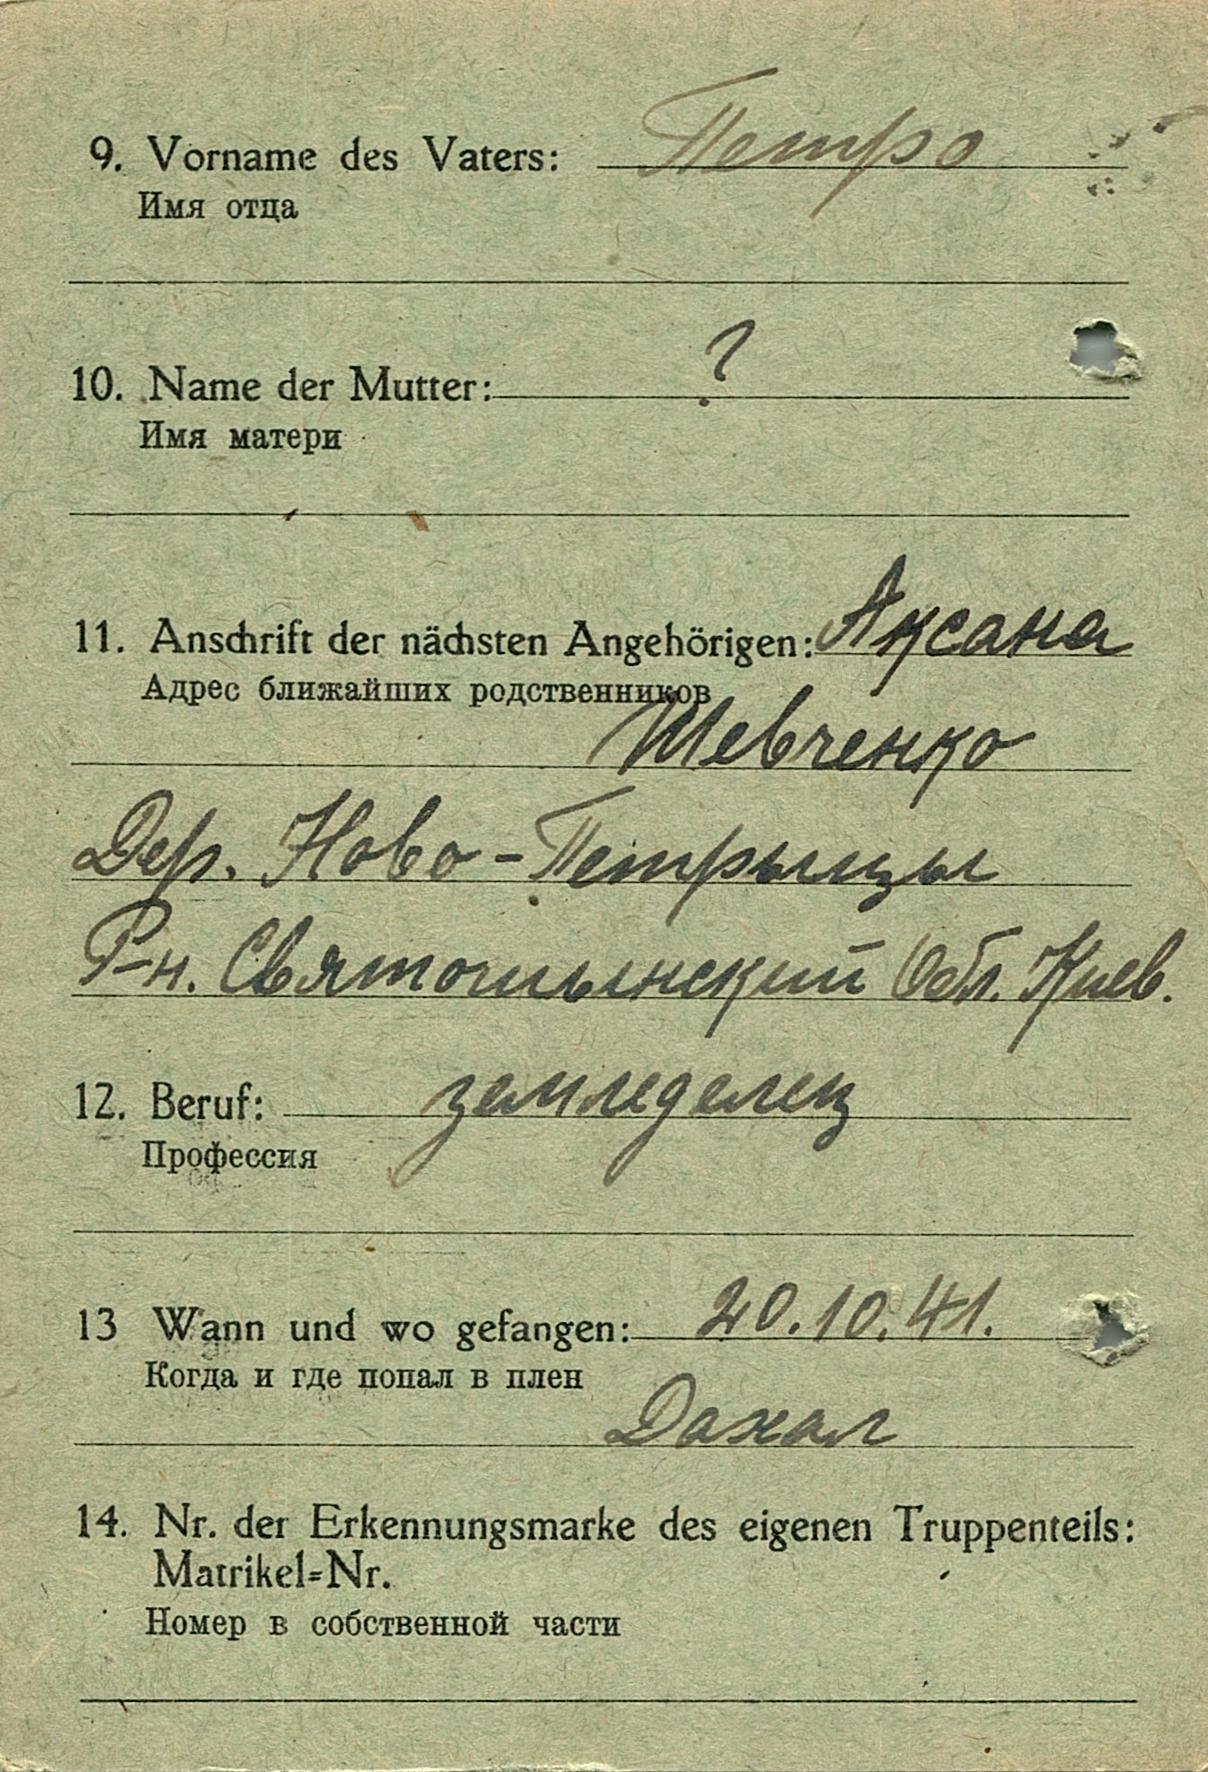 9. Vorname des Vaters: Петро
Имя отца
10. Name der Mutter: ?
Имя матери
11. Anschrift der nächsten Angehörigen: Аксана
Адрес ближайших родственников
Шевченко
Дер. Ново-Петрыцы
Р-н. Святошынский Обл. Киев.
12. Beruf: земледелец
Профессия
13 Wann und wo gefangen: 20.10.41.
Когда и где попал в плен
14. Nr. der Erkennungsmarke des eigenen Truppenteils:
Matrikel=Nr.
Номер в собственной части